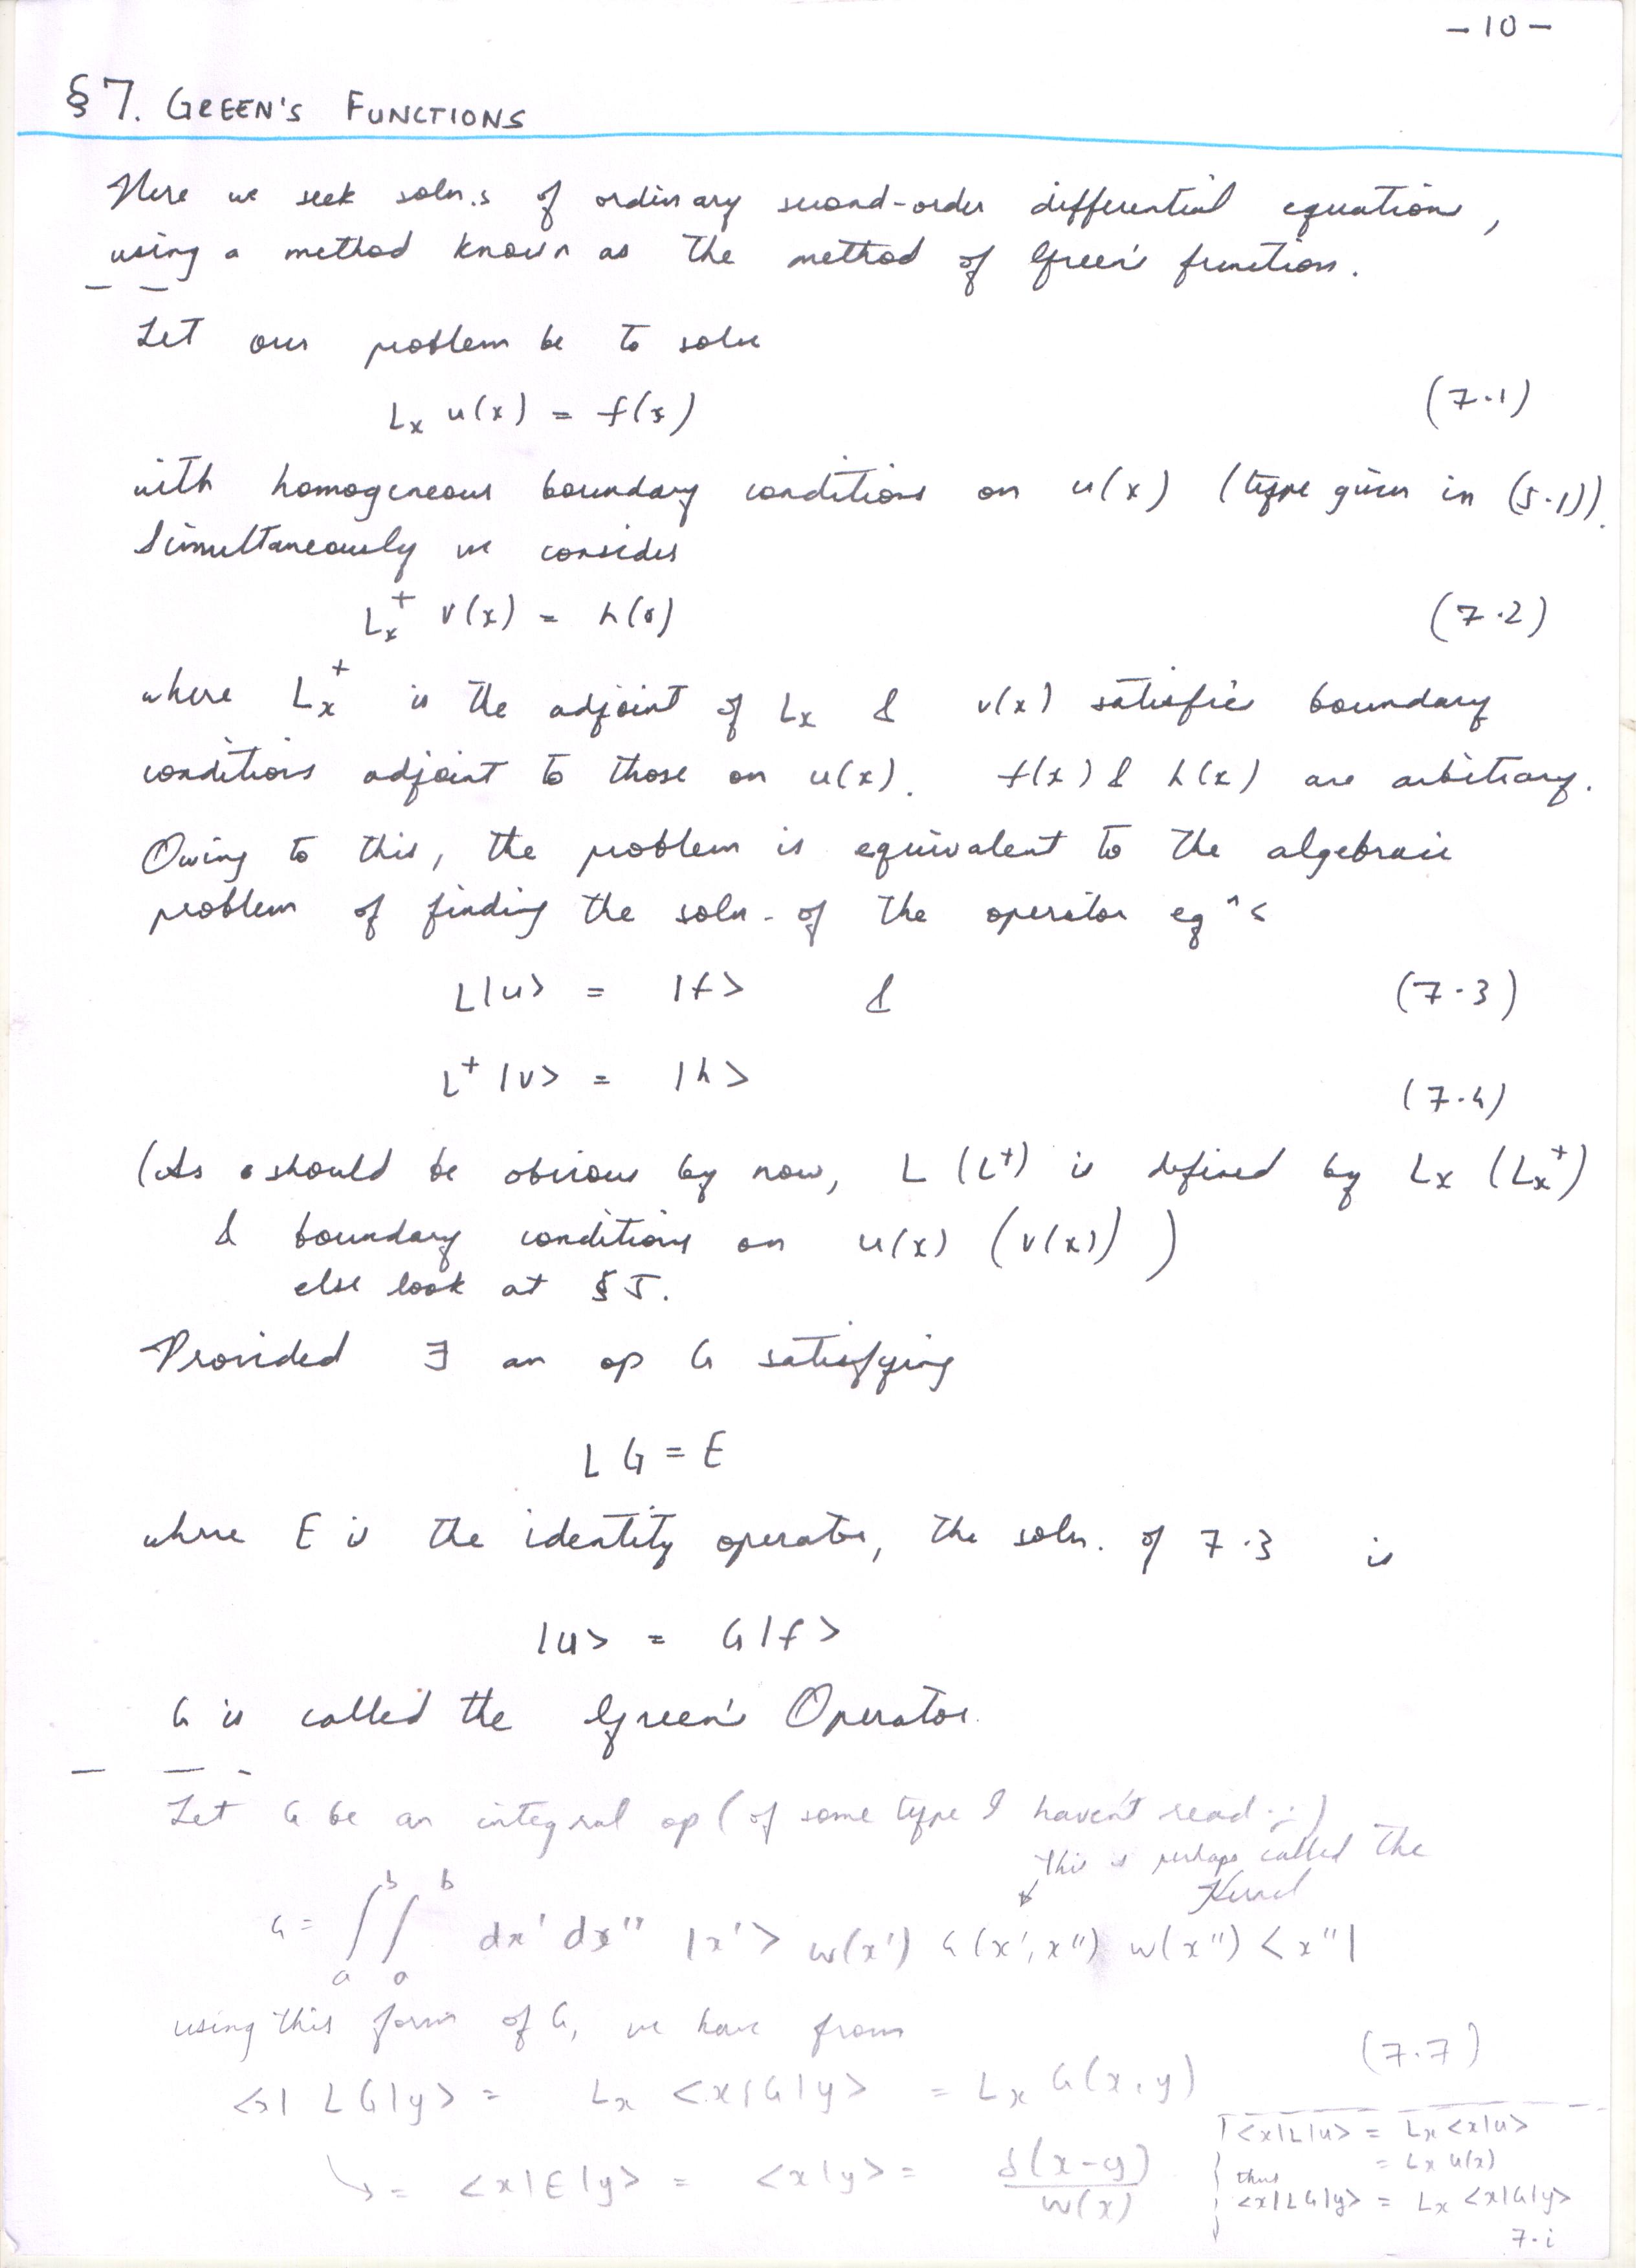 - 10 -
§7. GREEN'S FUNCTIONS
Here we seek soln.s of ordinary second-order differential equations,
using a method known as the method of Green's functions.
Let our problem be to solve
Lₓ u(x) = f(x) (7.1)
with homogeneous boundary conditions on u(x) (type given in (5.1)).
Simultaneously we consider
Lₓ⁺ v(x) = h(x) (7.2)
where Lₓ⁺ is the adjoint of Lₓ & v(x) satisfies boundary
conditions adjoint to those on u(x). f(x) & h(x) are arbitrary.
Owing to this, the problem is equivalent to the algebraic
problem of finding the soln. of the operator eqⁿs
L|u> = |f> & (7.3)
L⁺|v> = |h> (7.4)
(As should be obvious by now, L (L⁺) is defined by Lₓ (Lₓ⁺)
& boundary conditions on u(x) (v(x)) )
else look at §5.
Provided ∃ an op G satisfying
L G = E
where E is the identity operator, the soln. of 7.3 is
|u> = G|f>
G is called the Green's Operator.
Let G be an integral op (of some type I haven't read :-)
this is perhaps called the
Kernel
G = ∫ₐᵇ ∫ₐᵇ dx' dx'' |x'> w(x') G(x', x'') w(x'') <x''|
using this form of G, we have from (7.7)
<x| LG|y> = Lₓ <x|G|y> = Lₓ G(x,y)
↳ = <x|E|y> = <x|y> = δ(x-y)/w(x)
<x|L|u> = Lₓ <x|u>
= Lₓ u(x)
thus
<x|LG|y> = Lₓ <x|G|y>
7.i